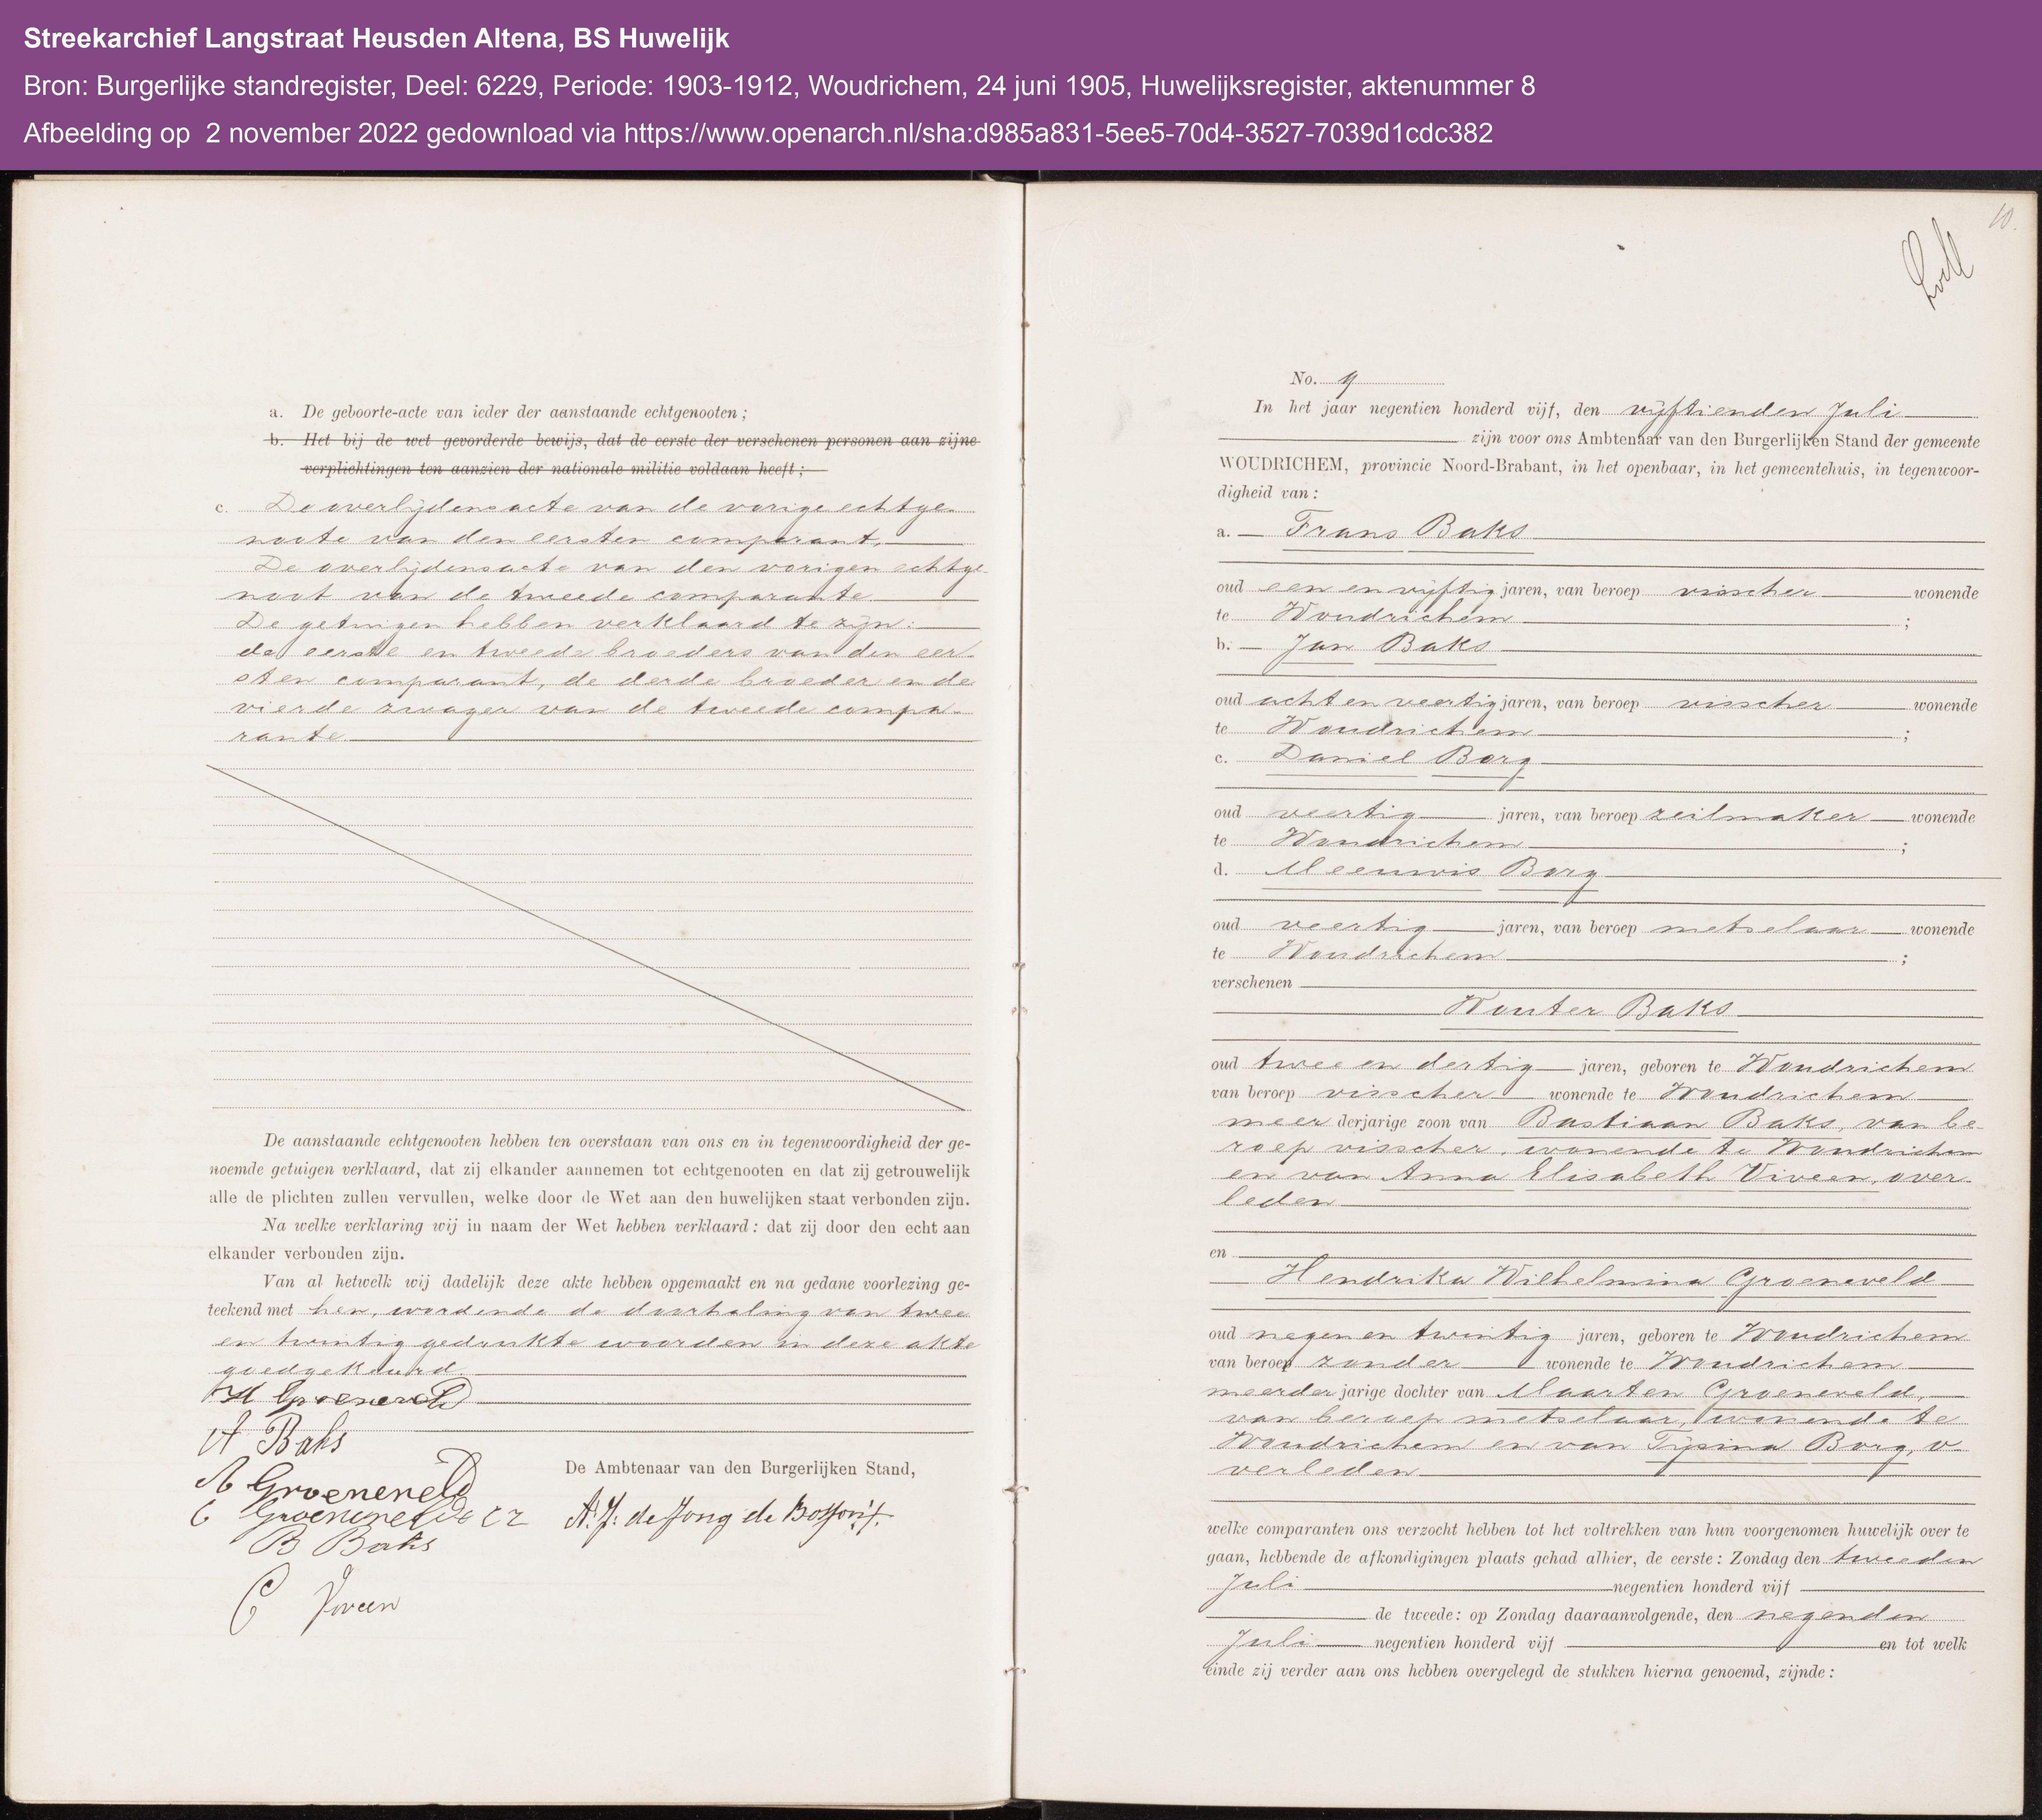 Streekarchief Langstraat Heusden Altena, BS Huwelijk
Bron: Burgerlijke standregister, Deel: 6229, Periode: 1903-1912, Woudrichem, 24 juni 1905, Huwelijksregister, aktenummer 8
Afbeelding op 2 november 2022 gedownload via https://www.openarch.nl/sha:d985a831-5ee5-70d4-3527-7039d1cdc382
a. De geboorte-acte van ieder der aanstaande echtgenooten;
b. Het bij de wet gevorderde bewijs, dat de eerste der verschenen personen aan zijne
verplichtingen ten aanzien der nationale militie voldaan heeft;
c. De overlijdensacte van de vorige echtge-
noote van den eersten comparant,
De overlijdensacte van den vorigen echtge-
noot van de tweede comparante
De getuigen hebben verklaard te zijn:
de eerste en tweede broeders van den eer-
sten comparant, de derde broeder en de
vierde zwager van de tweede compa-
rante.
De aanstaande echtgenooten hebben ten overstaan van ons en in tegenwoordigheid der ge-
noemde getuigen verklaard, dat zij elkander aannemen tot echtgenooten en dat zij getrouwelijk
alle de plichten zullen vervullen, welke door de Wet aan den huwelijken staat verbonden zijn.
Na welke verklaring wij in naam der Wet hebben verklaard: dat zij door den echt aan
elkander verbonden zijn.
Van al hetwelk wij dadelijk deze akte hebben opgemaakt en na gedane voorlezing ge-
teekend met hen, wordende de doorhaling van twee
en twintig gedrukte woorden in deze akte
goedgekeurd.
H Groeneveld
A Baks
A Groeneveld
De Ambtenaar van den Burgerlijken Stand,
C Groeneveld
A. J. de Jong de
B Baks
C Viveen
10.
No. 9
In het jaar negentien honderd vijf, den vijftienden Juli
zijn voor ons Ambtenaar van den Burgerlijken Stand der gemeente
WOUDRICHEM, provincie Noord-Brabant, in het openbaar, in het gemeentehuis, in tegenwoor-
digheid van:
a. Frans Baks
oud een en vijftig jaren, van beroep visscher wonende
te Woudrichem ;
b. Jan Baks
oud acht en veertig jaren, van beroep visscher wonende
te Woudrichem ;
c. Daniel Borg
oud veertig jaren, van beroep zeilmaker wonende
te Woudrichem ;
d. Meeuwis Borg
oud veertig jaren, van beroep metselaar wonende
te Woudrichem ;
verschenen
Wouter Baks
oud twee en dertig jaren, geboren te Woudrichem
van beroep visscher wonende te Woudrichem
meer derjarige zoon van Bastiaan Baks, van be-
roep visscher, wonende te Woudrichem
en van Anna Elisabeth Viveen, over-
leden
en
Hendrika Wilhelmina Groeneveld
oud negen en twintig jaren, geboren te Woudrichem
van beroep zonder wonende te Woudrichem
meerder jarige dochter van Maarten Groeneveld,
van beroep metselaar, wonende te
Woudrichem en van Tijsina Borg, o-
verleden
welke comparanten ons verzocht hebben tot het voltrekken van hun voorgenomen huwelijk over te
gaan, hebbende de afkondigingen plaats gehad alhier, de eerste: Zondag den tweeden
Juli negentien honderd vijf
de tweede: op Zondag daaraanvolgende, den negenden
Juli negentien honderd vijf en tot welk
einde zij verder aan ons hebben overgelegd de stukken hierna genoemd, zijnde: